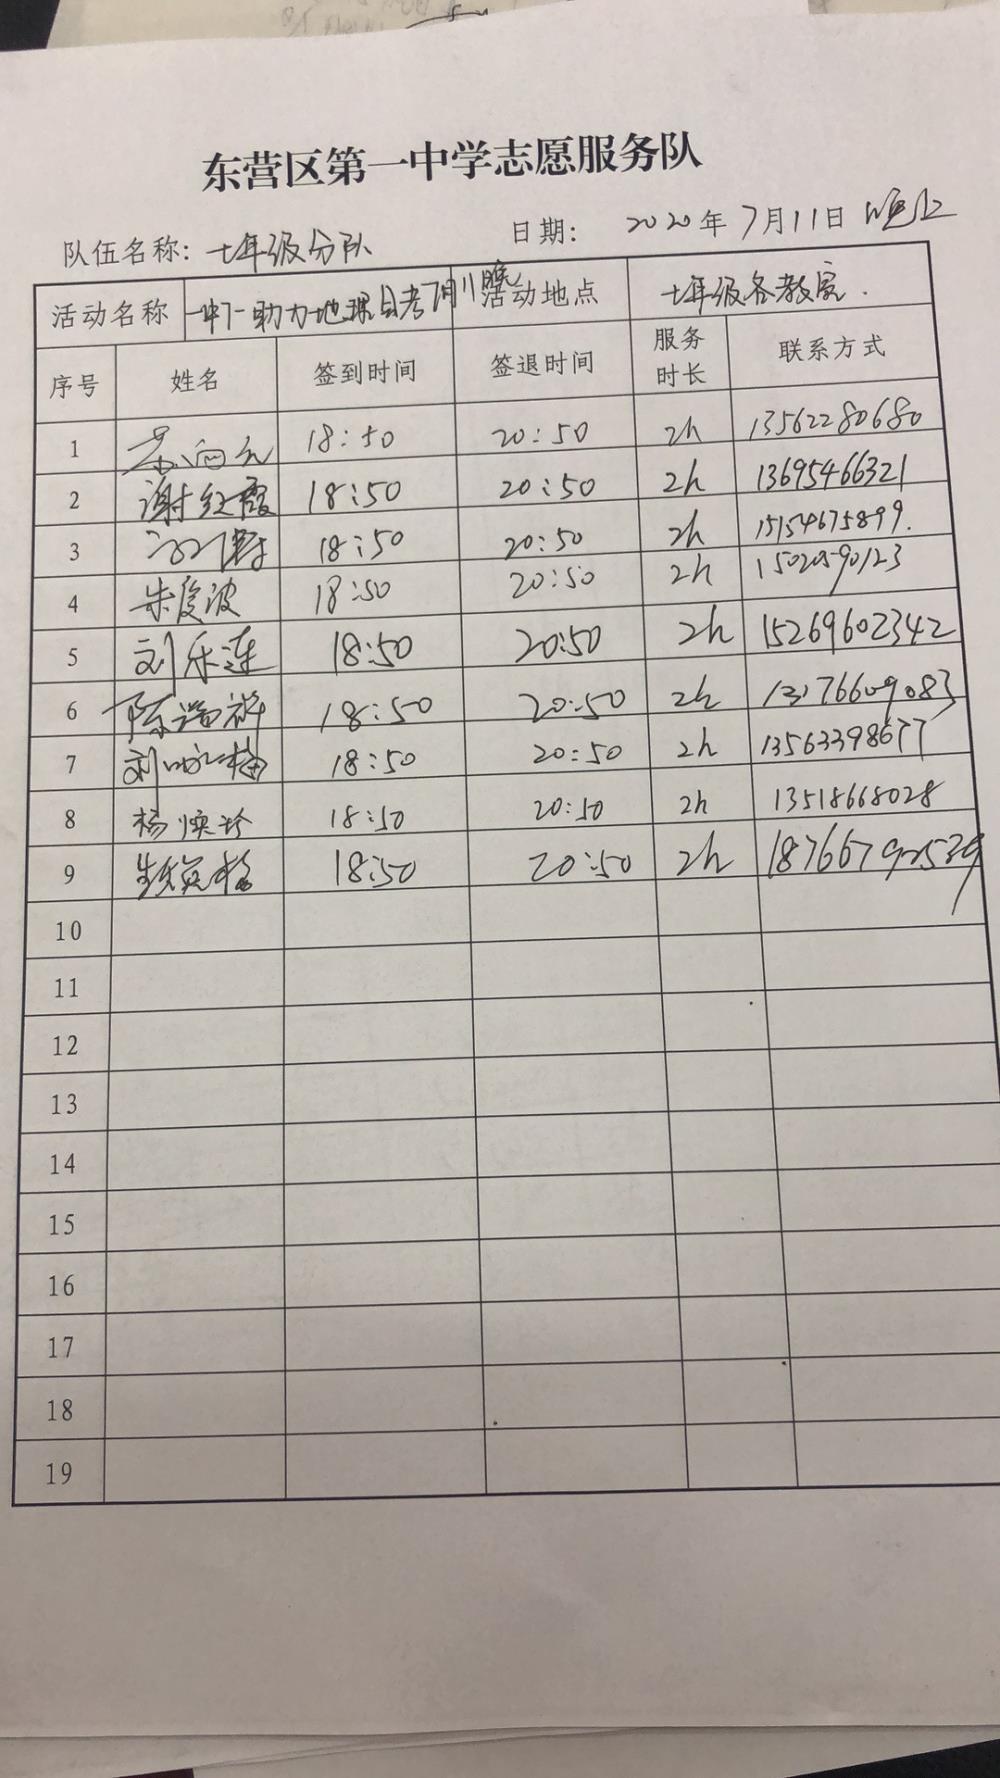 东营区第一中学志愿服务队
队伍名称：七年级分队 日期： 2020年7月11日 晚上
活动名称 助力地理 考7月11晚 活动地点 七年级各教室.
序号 姓名 签到时间 签退时间 服务时长 联系方式
1 18:50 20:50 2h 13562280680
2 谢红霞 18:50 20:50 2h 13695466321
3 18:50 20:50 2h 15154675899.
4 朱俊波 18:50 20:50 2h 15020590123
5 刘乐莲 18:50 20:50 2h 15269602342
6 陈 18:50 20:50 2h 13176609083
7 刘咏梅 18:50 20:50 2h 13563398677
8 杨焕珍 18:50 20:50 2h 13518668028
9 18:50 20:50 2h
10
11
12
13
14
15
16
17
18
19